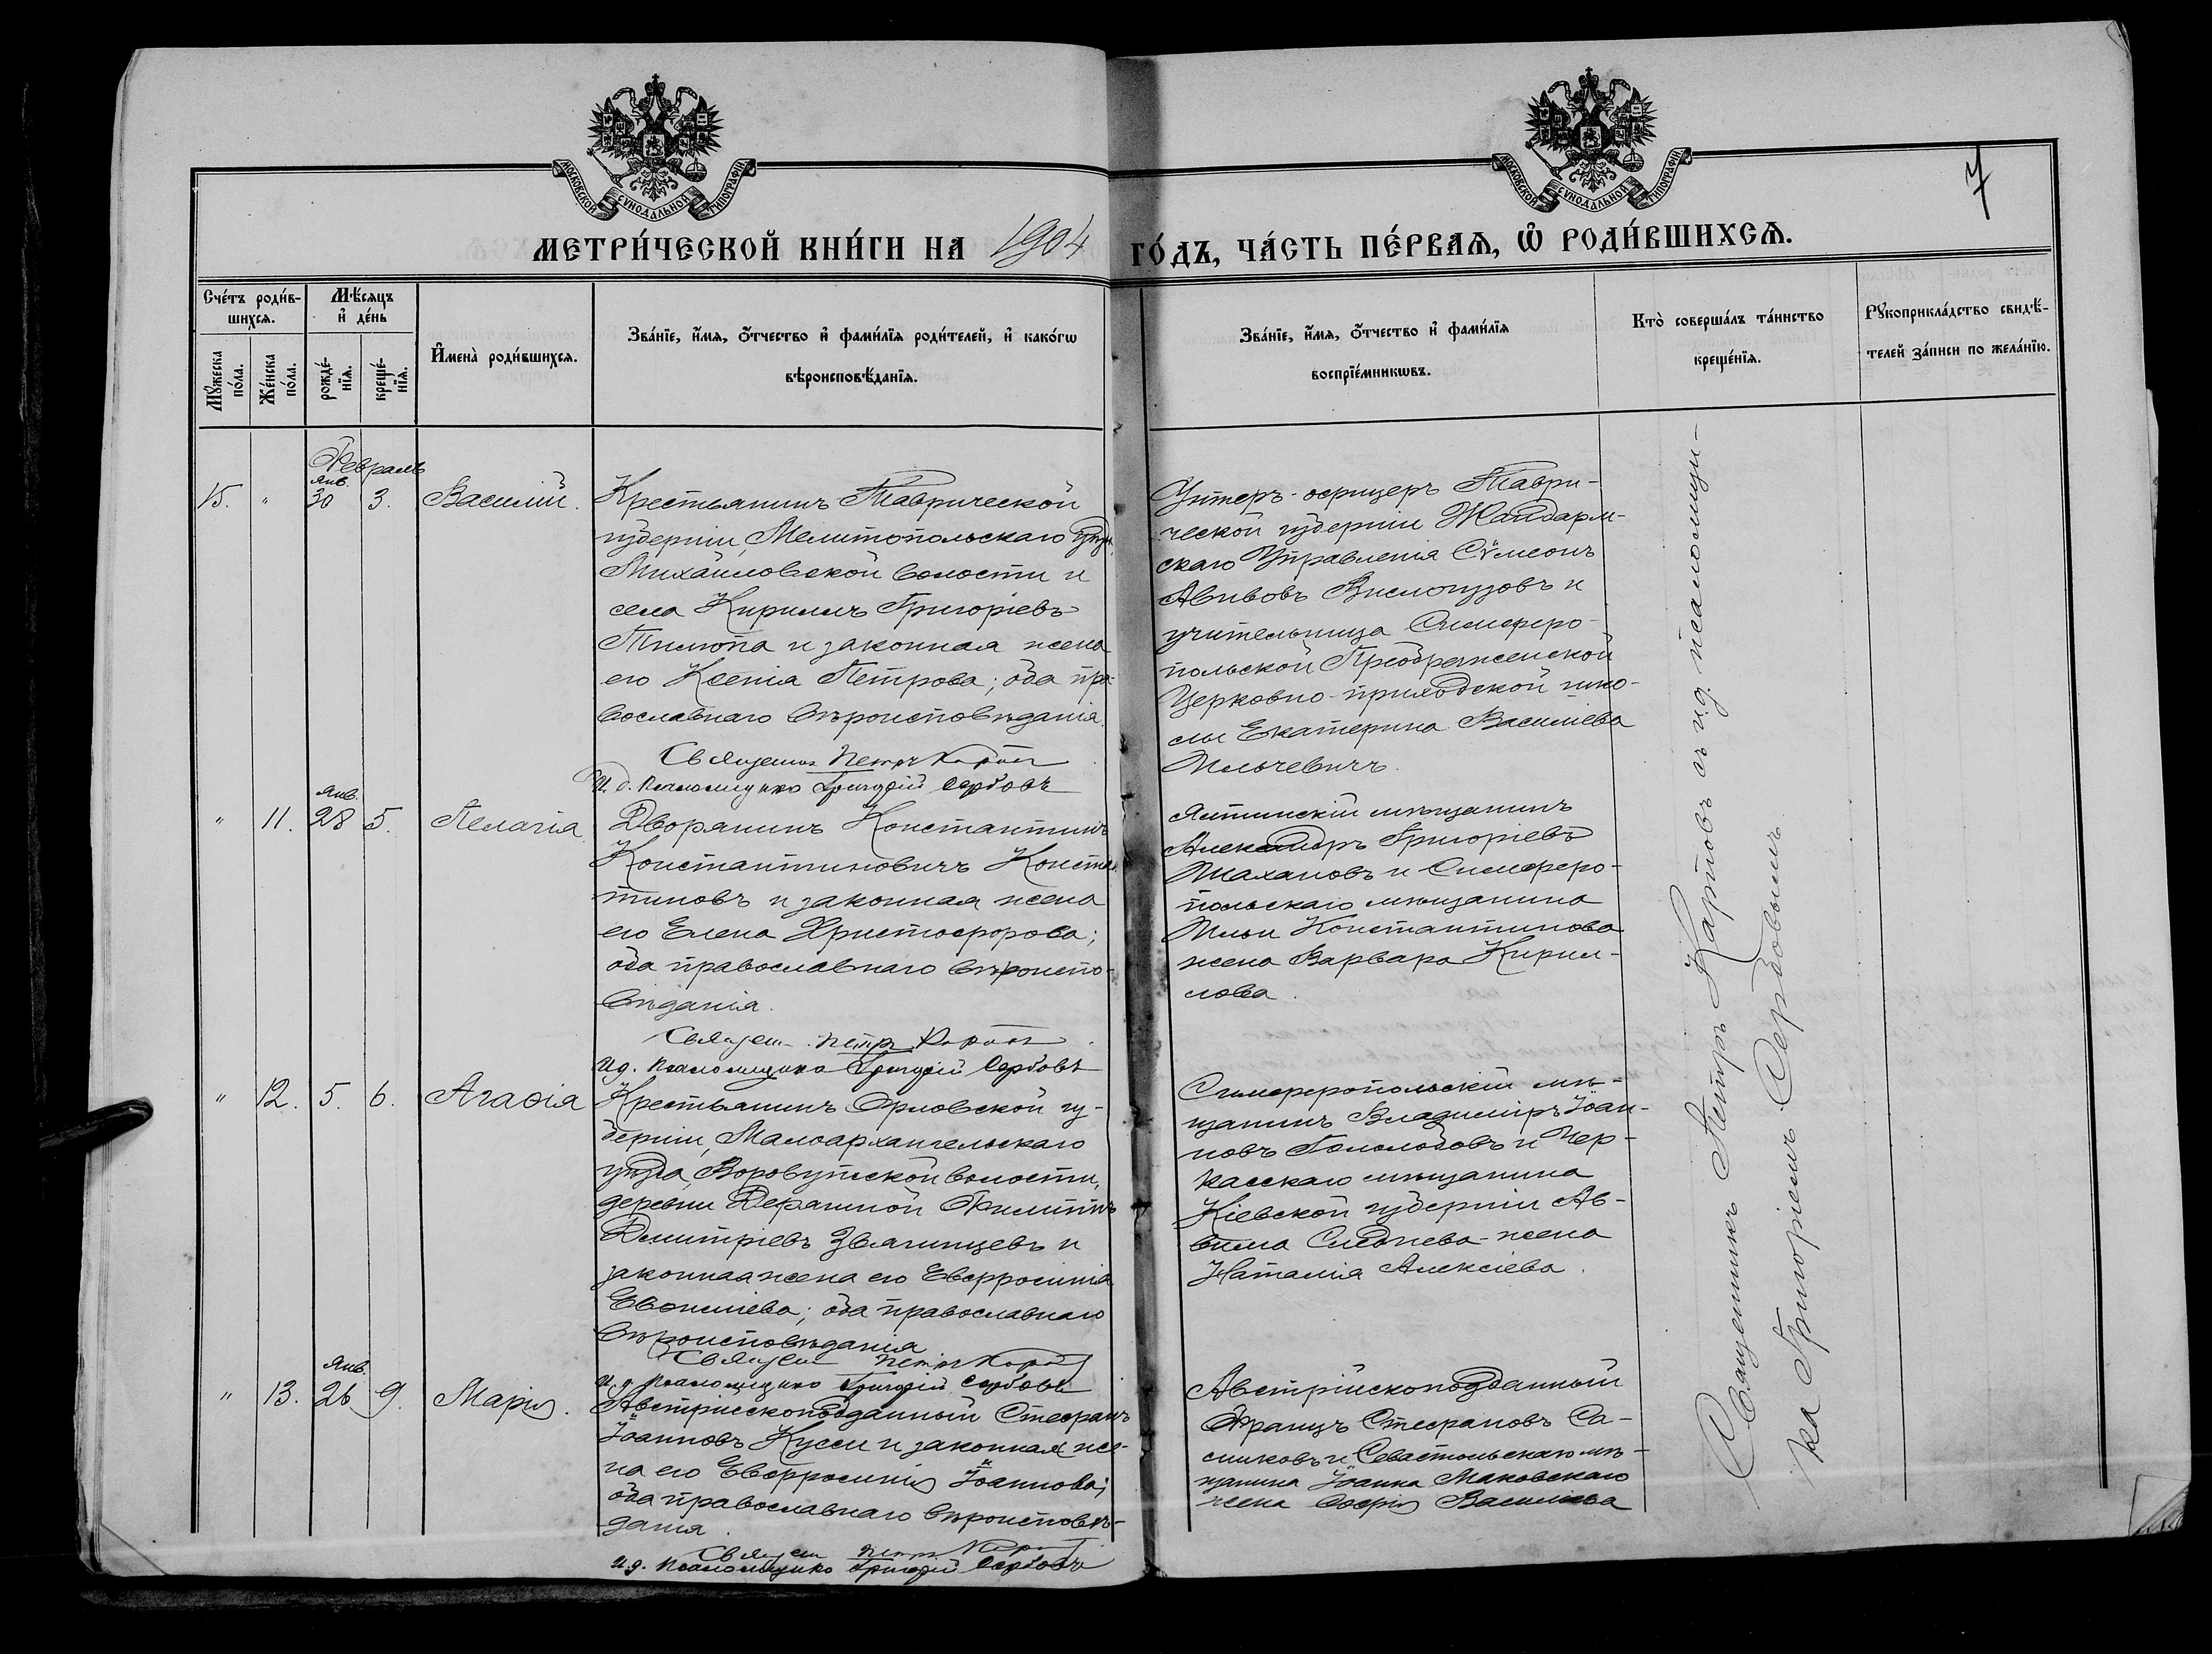 МОСКОВСКОЙ СѴНОДАЛЬНОЙ ТИПОГРАФІИ
МОСКОВСКОЙ СѴНОДАЛЬНОЙ ТИПОГРАФІИ
7
МЕТРИ́ЧЕСКОЙ КНИ́ГИ НА 1904 ГО́ДЪ, ЧА́СТЬ ПЕ́РВАѦ, Ѽ РОДИ́ВШИХСѦ.
Сче́тъ роди́в-
шихсѧ.
Мѣ́сѧцъ
и҆ де́нь
Мꙋ́жеска
по́ла.
Же́нска
по́ла.
рожде́-
нїѧ.
креще́-
нїѧ.
И҆мена̀ роди́вшихсѧ.
Зва́нїе, и҆́мѧ, ѻ҆́тчество и҆ фами́лїѧ роди́телей, и҆ како́гѡ
вѣроисповѣ́данїѧ.
Зва́нїе, и҆́мѧ, ѻ҆́тчество и҆ фами́лїѧ
воспрїе́мникѡвъ.
Кто̀ соверша́лъ та́инство
креще́нїѧ.
Рꙋкоприкла́дство свидѣ́-
телей за́писи по жела́нїю.
Февраль
Янв.
15. " 30 3. Василій.
Крестьянинъ Таврической
губерніи, Мелитопольскаго уѣзд.
Михайловской волости и
села Кириллъ Григоріевъ
и законная жена
его Ксенія Петрова; оба пра-
вославнаго вѣроисповѣданія.
Священн. Петръ Карпов
И. д. Псаломщика Григорій Сербовъ
Унтеръ-офицеръ Таври-
ческой губерніи Жандарм-
скаго Управленія Сѵмеонъ
Авивовъ Вислогузовъ и
учительница Симферо-
польской Преображенской
Церковно-приходской шко-
лы Екатерина Василіева
Ильчевичъ.
Янв.
" 11. 28 5. Пелагія
Дворянинъ Константинъ
Константиновичъ Констан
тиновъ и законная жена
его Елена Христофорова;
оба православнаго вѣроиспо-
вѣданія.
Священ. Петръ Карпов
И.д. Псаломщика Григорій Сербовъ
Ялтинскій мѣщанинъ
Александръ Григоріевъ
Шахановъ и Симферо-
польскаго мѣщанина
Ильи Константинова
жена Варвара Кирил-
лова.
" 12. 5. 6. Агаѳія
Крестьянинъ Орловской гу-
берніи, Малоархангельскаго
уѣзда волости,
деревни Филиппъ
Димитріевъ Звягинцевъ и
законная жена его Евфросинія
Евѳиміева; оба православнаго
вѣроисповѣданія
Священ Петръ Карпов
И.д. Псаломщика Григорій Сербовъ
Симферопольскій мѣ-
щанинъ Владиміръ Іоан-
новъ Гололобовъ и Чер-
касскаго мѣщанина
Кіевской губерніи Ав-
вима жена
Наталія Алексіева.
Янв.
" 13. 26 9. Марія.
Австрійскоподданный Стефанъ
Іоанновъ Кусси и законная же-
на его Евфросинія Іоаннова;
оба православнаго вѣроисповѣ-
данія.
Священ Петръ Карпов
И.д. Псаломщика Григорій Сербовъ
Австрійскоподданный
Францъ Стефановъ Са-
и Севастопольскаго мѣ-
щанина Іоанна Маковскаго
жена Софія Василіева
Священникъ Петръ Карповъ съ и.д. псаломщи-
ка Григоріемъ Сербовымъ